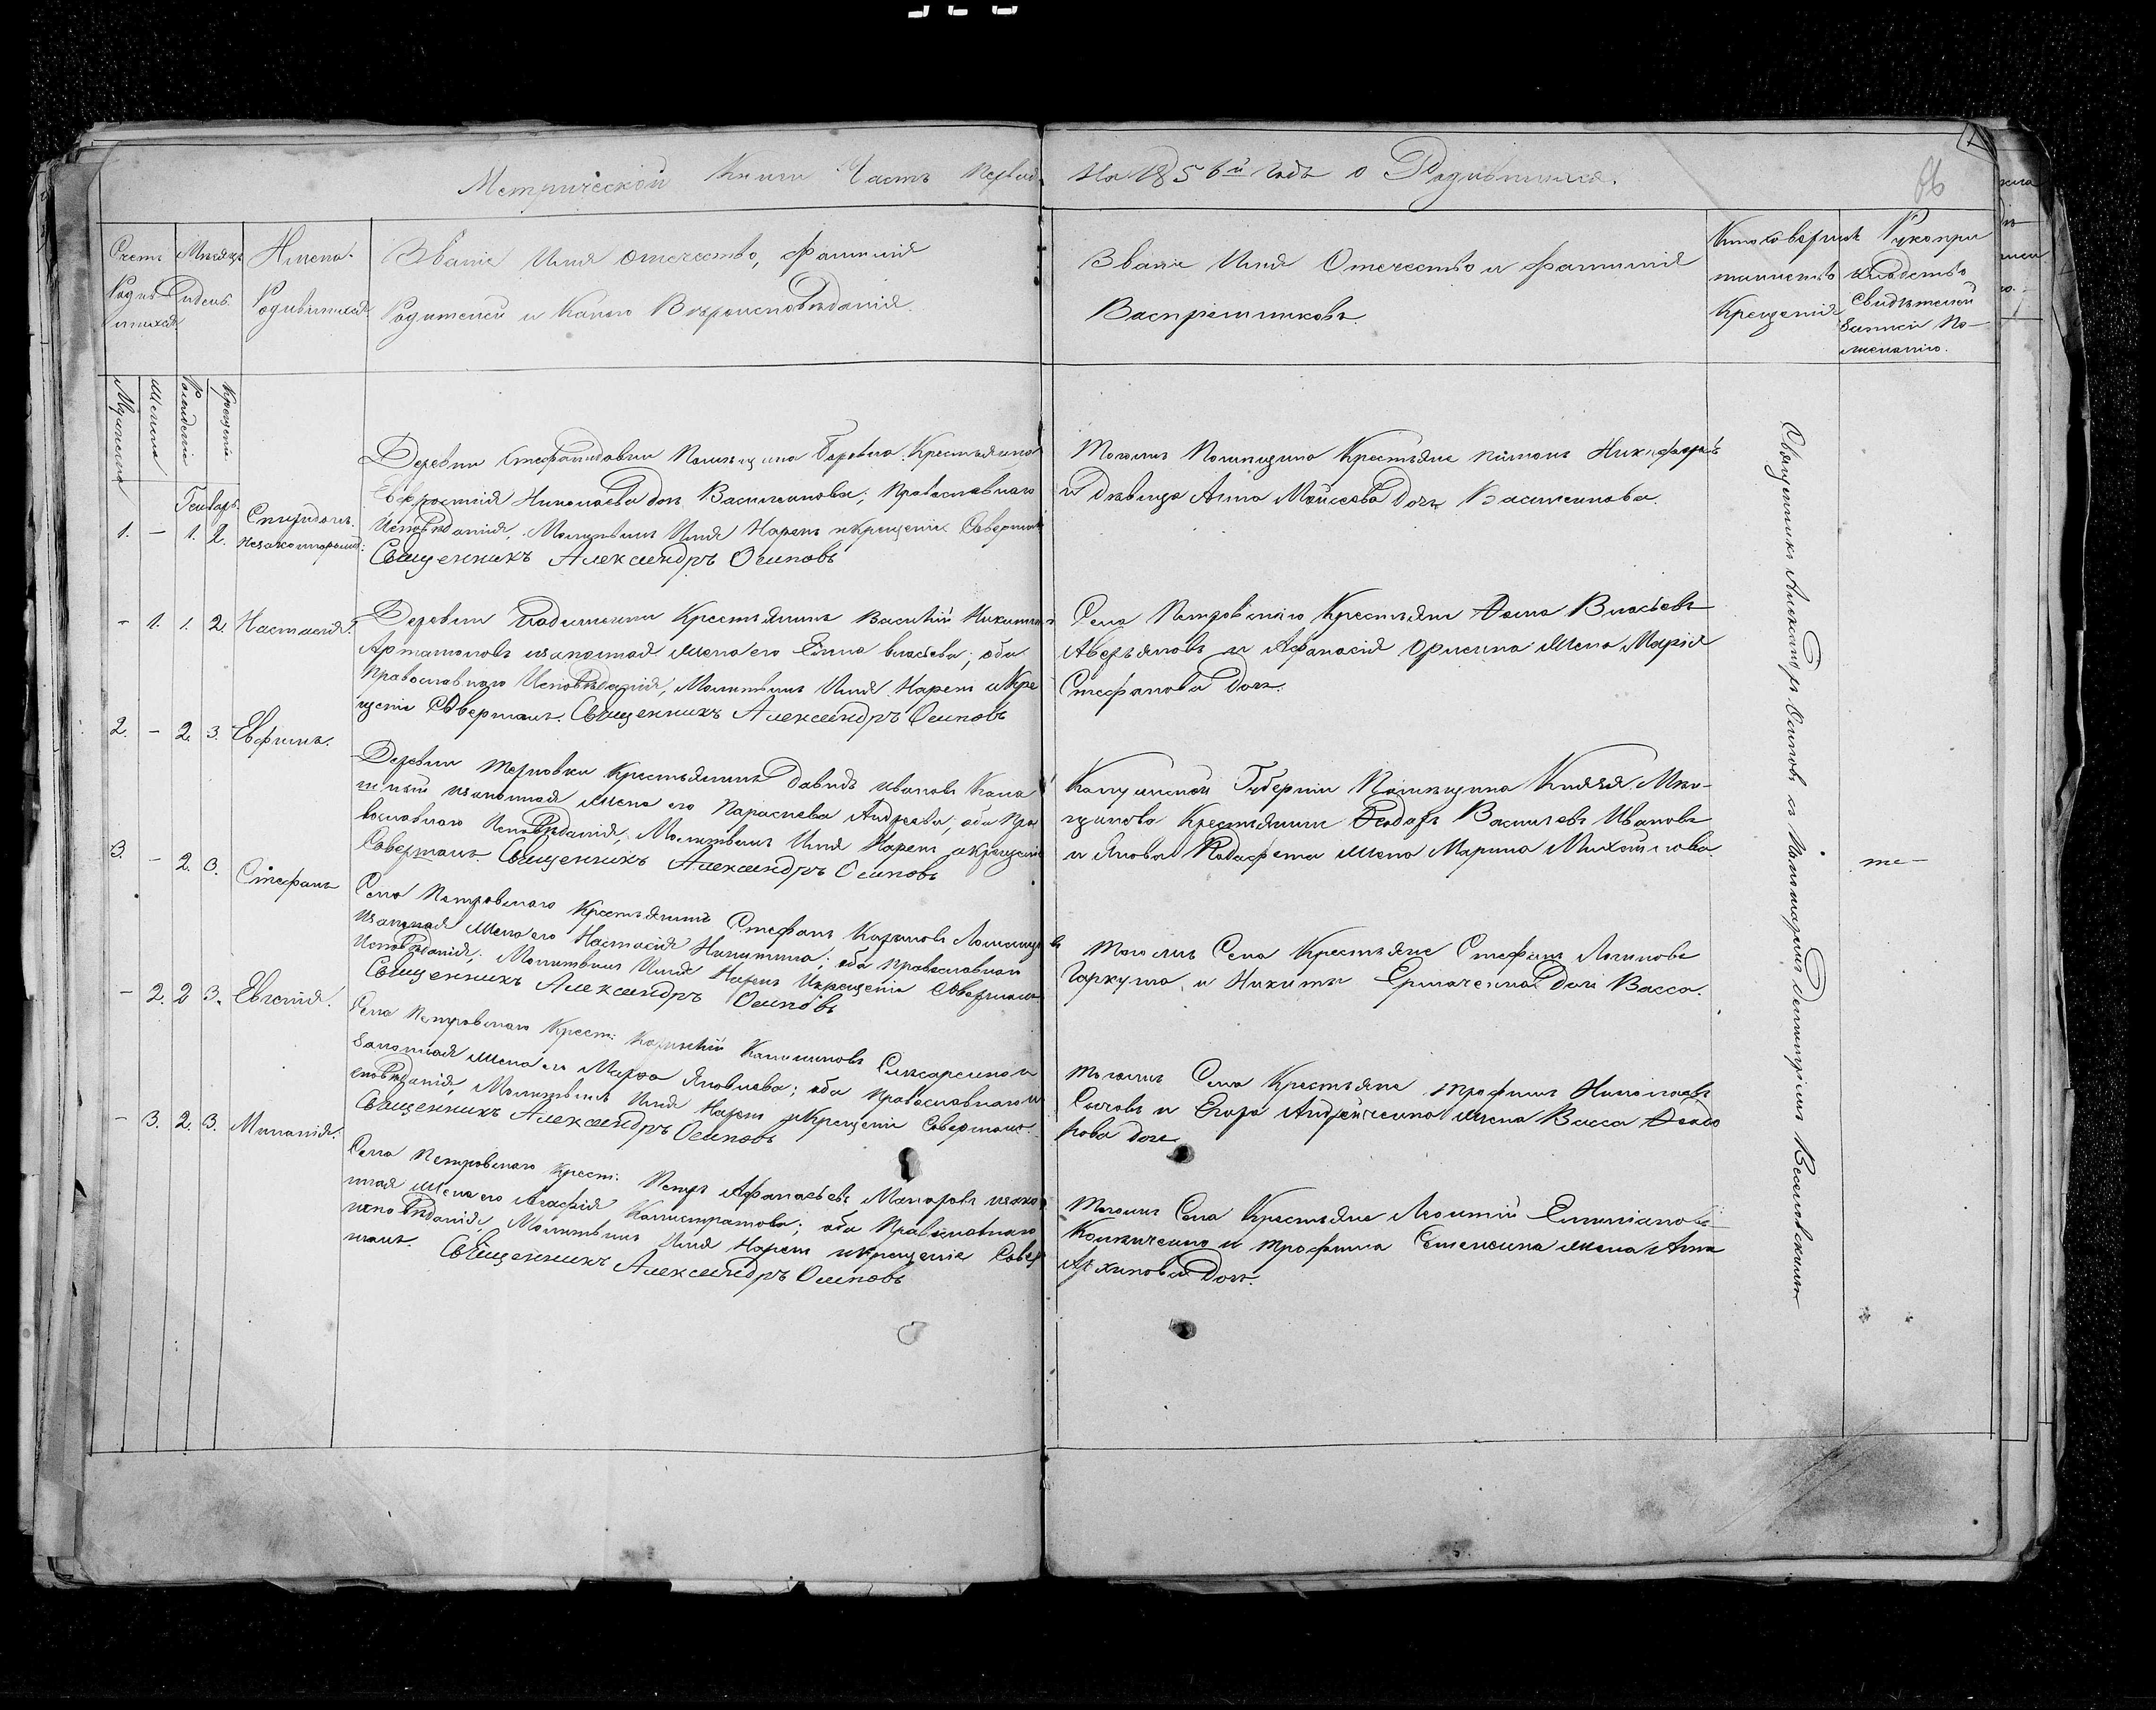 Метрической Книги Часть Первая
На 1856й Годъ о Родившихся.
66
Счетъ Родившихся
Мѣсяцъ и день
Имена Родившихся
Званіе Имя Отечество, Фамилія
Родителей и Какого Вѣроисповѣданія.
Званіе Имя Отечество и Фамилія
Васпріемниковъ.
Кто совершалъ таинство Крещенія
Рукоприкладство Свидѣтелей записи по желанію.
Мужеска
Женска
Рожденіе
Крещеніе
Генварь
1. — 1. 2. Спиридонъ. незаконнорожд:
Крестьянка
Николаева доч Василенкова; Православнаго
Исповѣданія, Молитвилъ Имя Нарекъ и Крещеніе Совершилъ
Священникъ Александръ Осиповъ
Тогожъ Помещика Крестьяне Никифоръ
и Дѣвица Анна Моисеева Доч Василенкова.
— 1. 1. 2. Настасія.
Деревни Крестьянинъ Василій Никитинъ
Артамоновъ изаконная жена его Власьева; оба
Православнаго Исповѣданія, Молитвилъ Имя Нарекъ и Кре
щеніе Совершилъ. Священникъ Александръ Осиповъ
Села Петровскаго Крестьяне Фома Власьевъ
Аверьяновъ и Афанасія жена Марія
Стефанова Доч.
2. — 2. 3. Евфимъ.
Деревни Терновки Крестьянинъ Давидъ Ивановъ
изаконная жена его Параскева Андреева; оба Пра
вославнаго Исповѣданія, Молитвилъ Имя Нарекъ и Крещеніе
Совершилъ. Священникъ Александръ Осиповъ
Калужской Губерніи Помѣщика Князя Ме-
щикова Крестьянинъ Феодоръ Васильевъ Ивановъ
и Якова жена Марина Михайлова.
3. — 2. 3. Стефанъ
Села Петровскаго Крестьянинъ Стефанъ
изаконная жена его Настасія Никитина; оба Православнаго
Исповѣданія, Молитвилъ Имя Нарекъ Икрещеніе Совершилъ
Священникъ Александръ Осиповъ
Тогожъ Села Крестьяне Стефанъ Логиновъ
Гаркуша и Никиты Ермаченка Доч Васса.
— 2. 2. 3. Евгенія.
Села Петровскаго Крест:
законная жена его Марфа Яковлева; оба Православнаго и
сповѣданія, Молитвилъ Имя Нарекъ и Крещеніе Совершилъ.
Священникъ Александръ Осиповъ
Тогожъ Села Крестьяне Трофимъ Николаевъ
Сычовъ и Егора Андрейченка жена Васса Феодо
рова доч
— 3. 2. 3. Миланія.
Села Петровскаго Крест: Петръ Афанасьевъ Макаровъ изако
нная жена его Агафія Калистратова; оба Православнаго
исповѣданія, Молитвилъ Имя Нарекъ и Крещеніе Совер
шилъ. Священникъ Александръ Осиповъ
Тогожъ Села Крестьяне Леонтій Емиліановъ
и Трофима жена Анна
Архипова Доч.
Священникъ Александръ Осиповъ съ Паномаремъ Димитріемъ Веселовскимъ